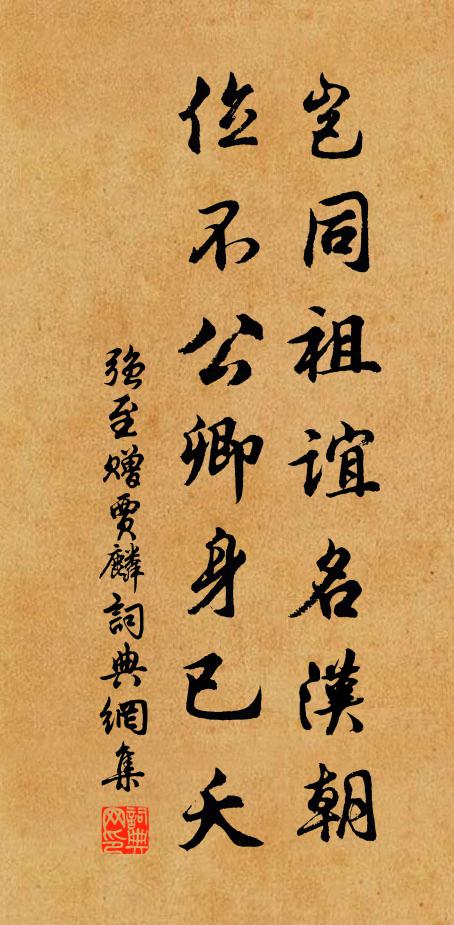 豈同祖誼名漢朝
位不公卿身已夭
強至贈賈麟詞典網集
詞典网印